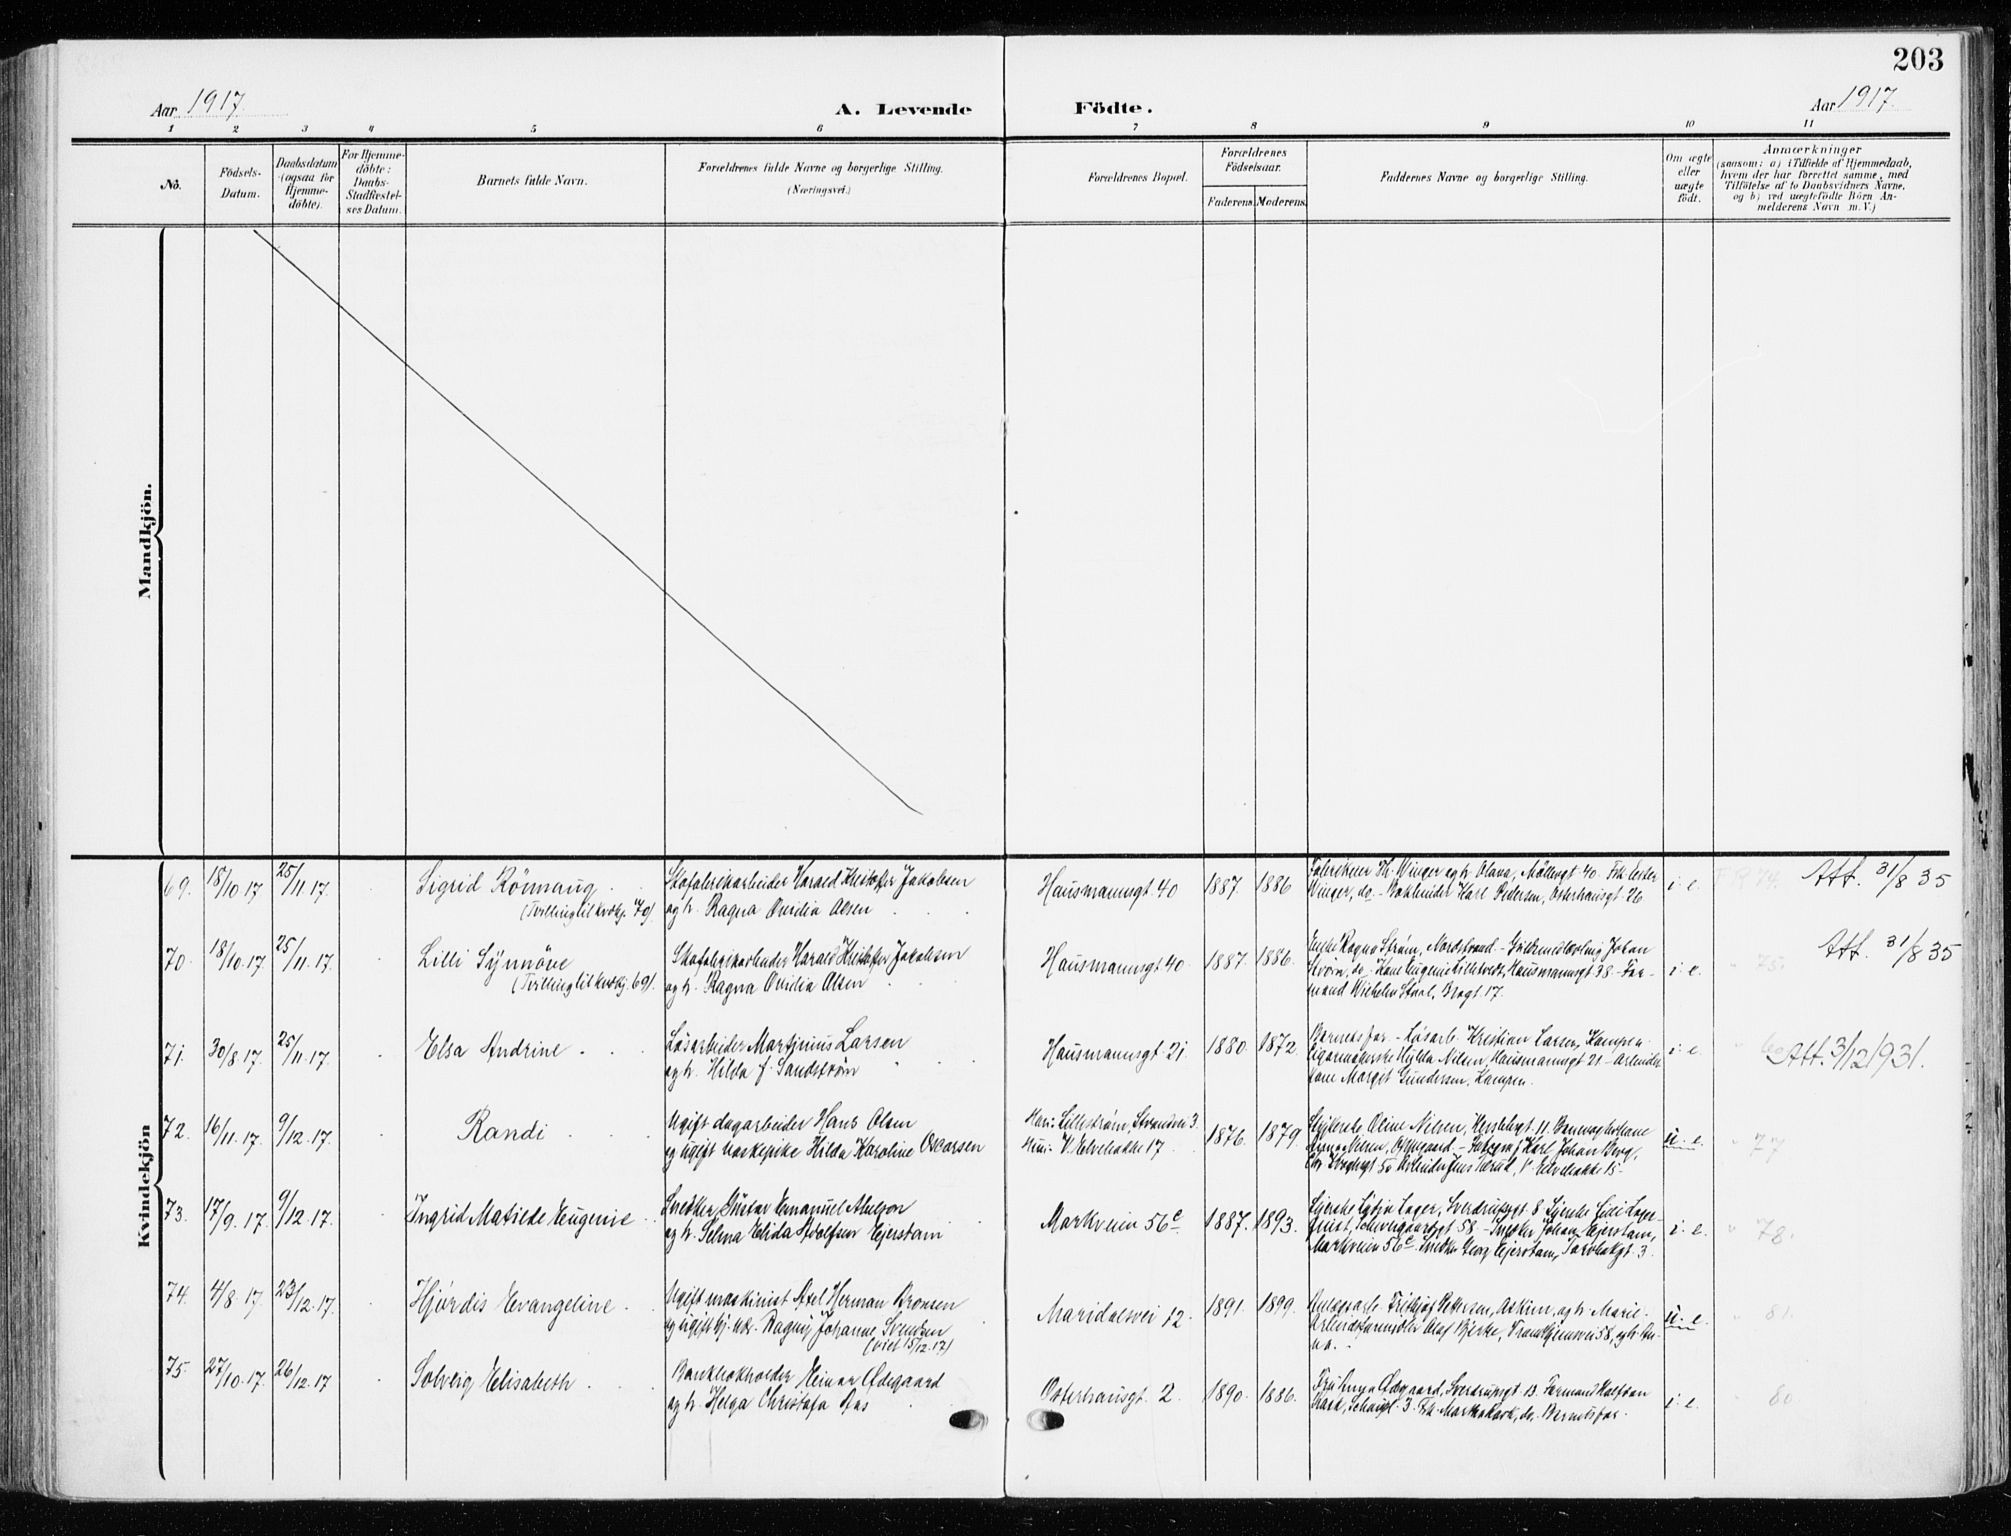 203
Aar 1917.
A. Levende Födte.
Aar 1917.
1 2 3 4 5 6 7 8 9 10 11
No.
Födsels-
Datum.
Daabsdatum
(ogsaa for
Hjemme-
döbte).
For Hjemme-
döbte:
Daabs-
Stadfæstel-
ses Datum.
Barnets fulde Navn.
Forældrenes fulde Navne og borgerlige Stilling.
(Næringsvei.)
Forældrenes Bopæl.
Forældrenes
Födselsaar.
Faderens. Moderens.
Faddernes Navne og borgerlige Stilling.
Om ægte
eller
uægte
födt.
Anmærkninger
(saasom: a) i Tilfælde af Hjemmedaab,
hvem der har forrettet samme, med
Tilföielse af to Daabsvidners Navne,
og b) ved uægtefödte Börn An-
melderens Navn m. V.)
Mandkjön.
Kvindekjön
69. 18/10 17 25/11 17. Sigrid Rönnaug
(Tvilling til kvkj. 70).
Skofabrikarbeider Harald Kristoffer Jakobsen
og h. Ragna Ovidia Olsen
Hausmannsgt 40 1887. 1886
Winger, do. - Bokbinder Karl Pedersen, Osterhausgt. 26
i. e. 74. Att. 31/8 35
70. 18/10. 17. 25/11. 17. Lilli Synnöve
(Tvilling til kvkj. 69).
Skofabrikarbeider Harald Kristoffer Jakobsen
og h. Ragna Ovidia Olsen
Hausmannsgt 40. 1887. 1886.
Enke Ragna Strøm, Nordstrand - Guldsmedlærling Johan
Strøm, do. - Kone Eugenie Lilletvedt, Hausmannsgt 38 - For-
mand Wilhelm Staal, Brogt. 17.
i. e. " 75. Att. 31/8 35
71. 30/8. 17. 25/11. 17. Elsa Andrine
Løsarbeider Martinius Larsen
og h. Hilda f. Sandstrøm
Hausmannsgt 21 1880. 1872.
Barnets far. - Løsarb. Kristian Larsen, Kampen
Cigarmakerske Hylda Nilsen, Hausmannsgt 21 - Arbeider
kone Margit Gundersen, Kampen.
i. e. Att. 3/12 1931.
72. 16/11. 17. 9/12. 17. Randi
Ugift dagarbeider Hans Olsen
og ugift vaskepike Hilda Karoline Oscarsen
Han: Lillestrøm, Strandvei 3.
Hun: V. Elvebakke 17
1876. 1879.
Sykerske Oline Nilsen,
Karl Johan Berg,
u. e. " 77
73. 17/9. 17 9/12. 17. Ingrid Matilde Eugenie
Snedker Gustav Emanuel
og h. Selma Elida Adolfsen Ejerstam
Markveien 56c 1887. 1893.
Sverdrupsgt 8
58 - Snedker Johan Ejerstam,
Markveien 56c. Snedker Georg Ejerstam, 3.
i. e. " 78.
74. 4/8. 17 23/12. 17. Hjørdis Evangeline
Ugift maskinist Axel Herman Bronsen
og ugift Ragny Johanne Svendsen
(viet 15/12. 17)
Maridalsvei 12. 1891. 1899.
Fritjof Pettersen, Askim, og h. Marie.
Olaf Bjerke, Trondhjemsvei 58, og h. An-
na.
u. e. " 81.
75. 27/10. 17. 26/12. 17 Solveig Elisabeth
Bankbokholder Einar Ødegaard
og h. Helga Christofa Aas
Osterhausgt. 2. 1890. 1886.
Ødegaard, Sverdrupsgt. 13. Formand Halfdan
3. Frk. Martha do. Barnets far.
i. e. " 80